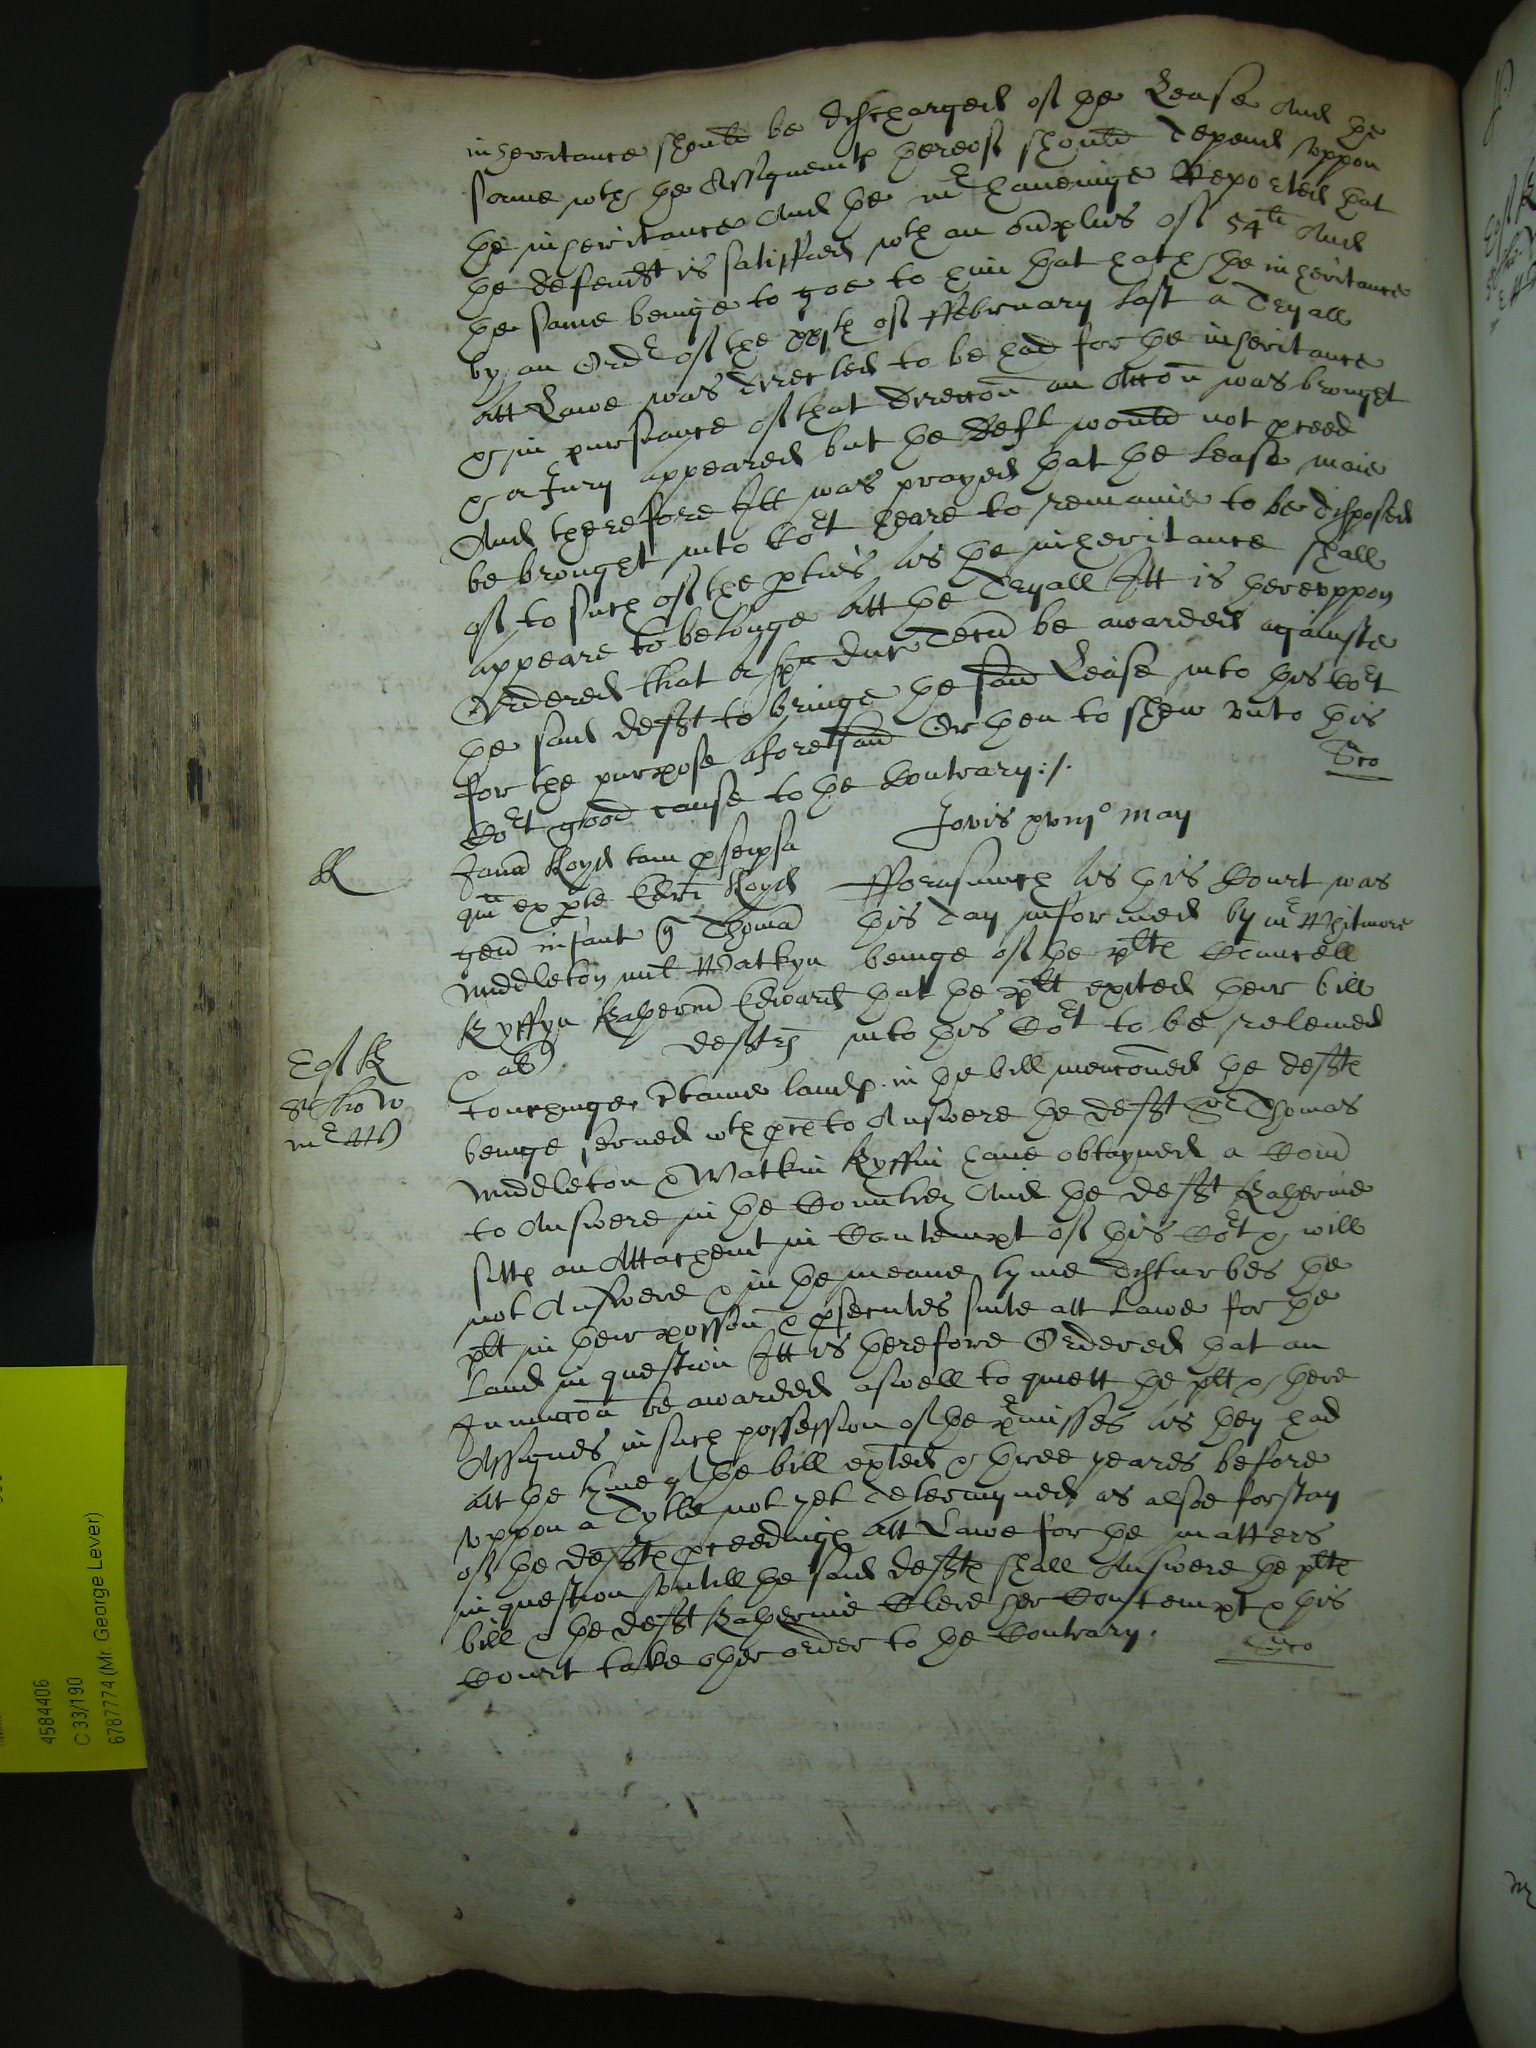 inheritance should be discharged of the Lease And the
same wth the Assignemts thereof should depend uppon
the inheritance And the mr haueinge Reported that
the defendt is satisfied wth an ouerplus of 54li And
the same beinge to goe to him that hath the inheritance
by an Ordr of the xxjth of ffebruary last a Tryall
att Lawe was directed to be had for the inheritance
& in pursuance of that direccon an Accon was brought
& a Jury appeared but the deft would not pceed
And therefore Itt was prayed that the Lease maie
be brought into Cort heare to remaine to be disposed
of to such of the pties as the inheritance shall
appeare to belonge att the Tryall Itt is hereuppon
Ordered that a spa duc Tecu be awarded againste
the said defendt to bringe the said Lease into this Cort
for the purpose aforesaid Or then to shew unto this
Cort good cause to the Contrary :/.
Jovis xviijo May
R
Jana lloyd tam p seipsa
qm ex pte Edri lloyd
gen infant q Thoma
Middleton mil Watkyn
Kyffyn Katherina Edwards
& al defts
fforasmuch as this Court was
this day informed by mr Whitmore
beinge of the plts Councell
that the plt exited their bill
into this Cort to be releived
touchinge certaine lands in the bill menconed the defts
beinge serued wth pces to Answere the deft Sr Thomas
Middleton & Watkin Kyffin haue obtayned a Com
to Answere in the Countrey And the deft Katherine
sitts an Attachemt in Contempt of this Cort & will
not Answere & in the meane tyme disturbes the
plt in their possion & psecutes suite att Lawe for the
Land in question Itt is therefore Ordered that an
Iniunccon be awarded aswell to quiett the plt & there
Assignes in such possession of the prmisses as they had
att the tyme of the bill exted & three yeares before
uppon a Tytle not yet determyned as alsoe for stay
of the defts pceedings att Lawe for the matters
in question untill the said defts shall Answere the plts
bill & the deft Katherine Clere her Contempt & this
Court take other order to the Contrary.
4584406
C 33/190
6787774 (Mr. George Lever)